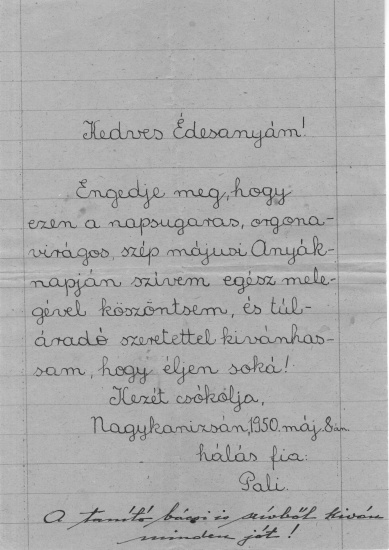 Kedves Édesanyám!
Engedje meg, hogy
ezen a napsugaras, orgona-
virágos, szép májusi Anyák-
napján szívem egész mele-
gével köszöntsem, és túl-
áradó szeretettel kivánhas-
sam, hogy éljen soká!
Kezét csókolja,
Nagykanizsán, 1950. máj. 8.án.
hálás fia:
Pali.
A tanító bácsi is szívből kiván
minden jót!